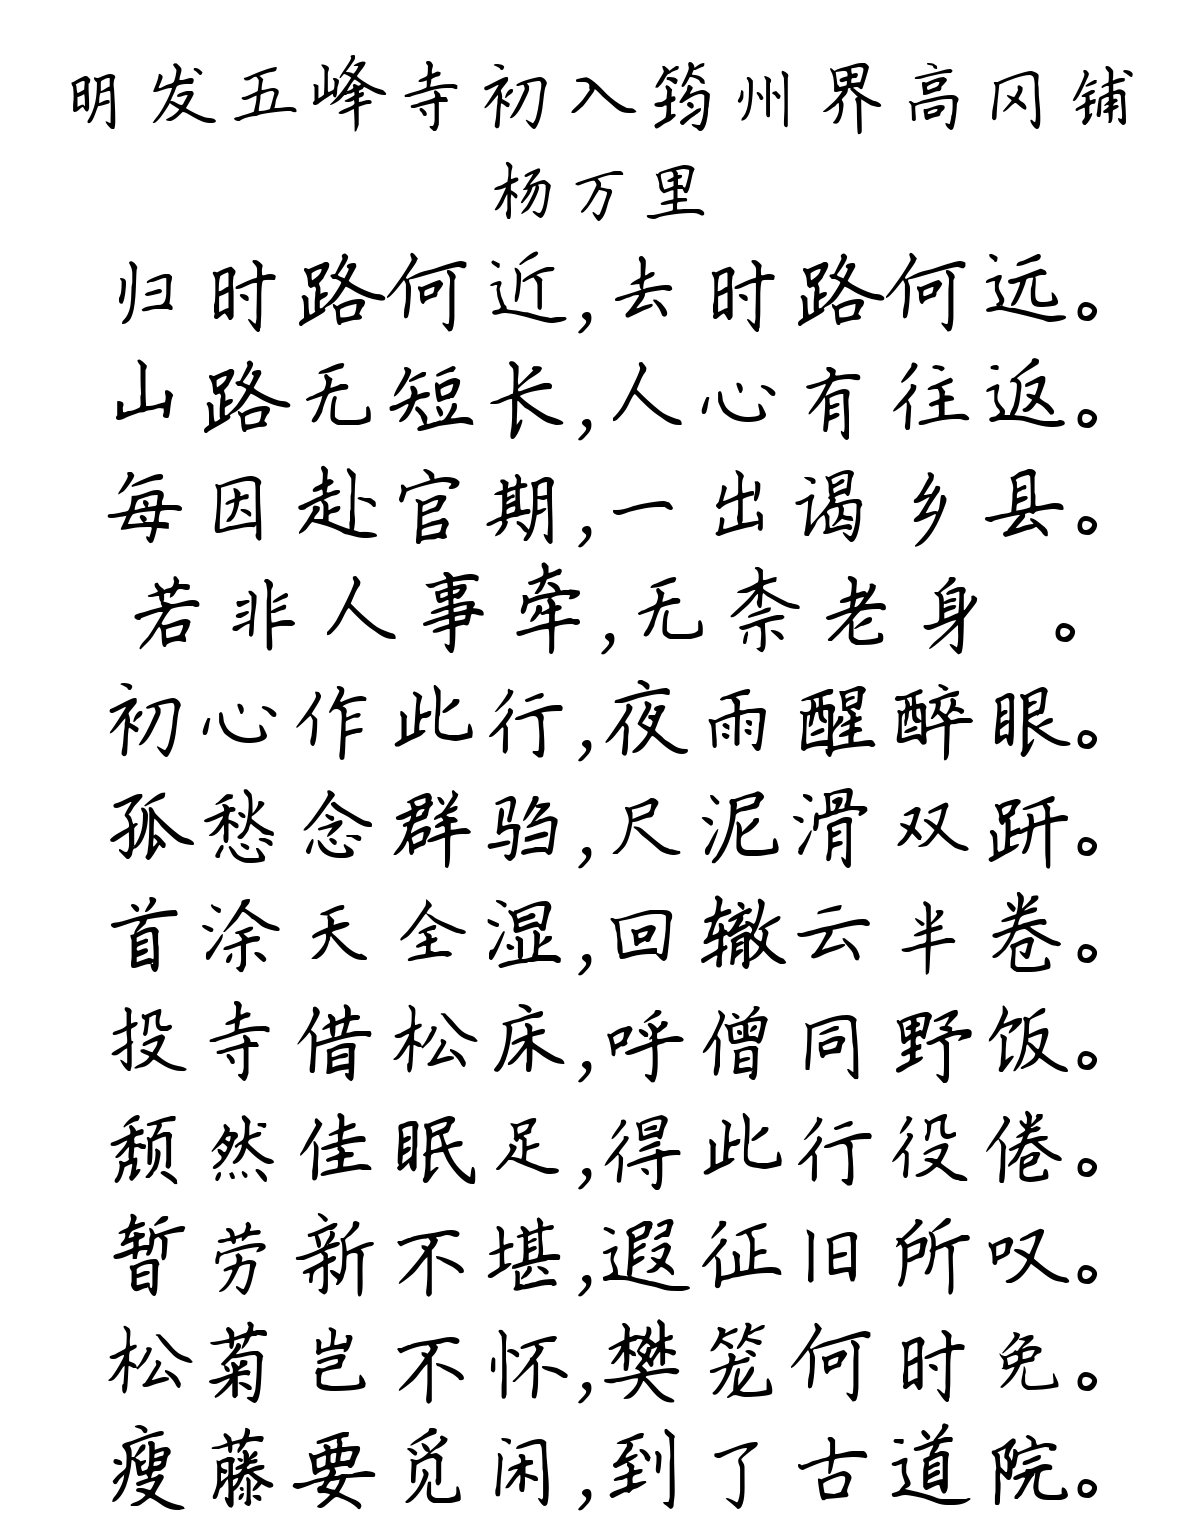 明发五峰寺初入筠州界高冈铺
杨万里
归时路何近,去时路何远。
山路无短长,人心有往返。
每因赴官期,一出谒乡县。
若非人事牵,无柰老身 。
初心作此行,夜雨醒醉眼。
孤愁念群驺,尺泥滑双趼。
首涂天全湿,回辙云半卷。
投寺借松床,呼僧同野饭。
颓然佳眠足,得此行役倦。
暂劳新不堪,遐征旧所叹。
松菊岂不怀,樊笼何时免。
瘦藤要觅闲,到了古道院。